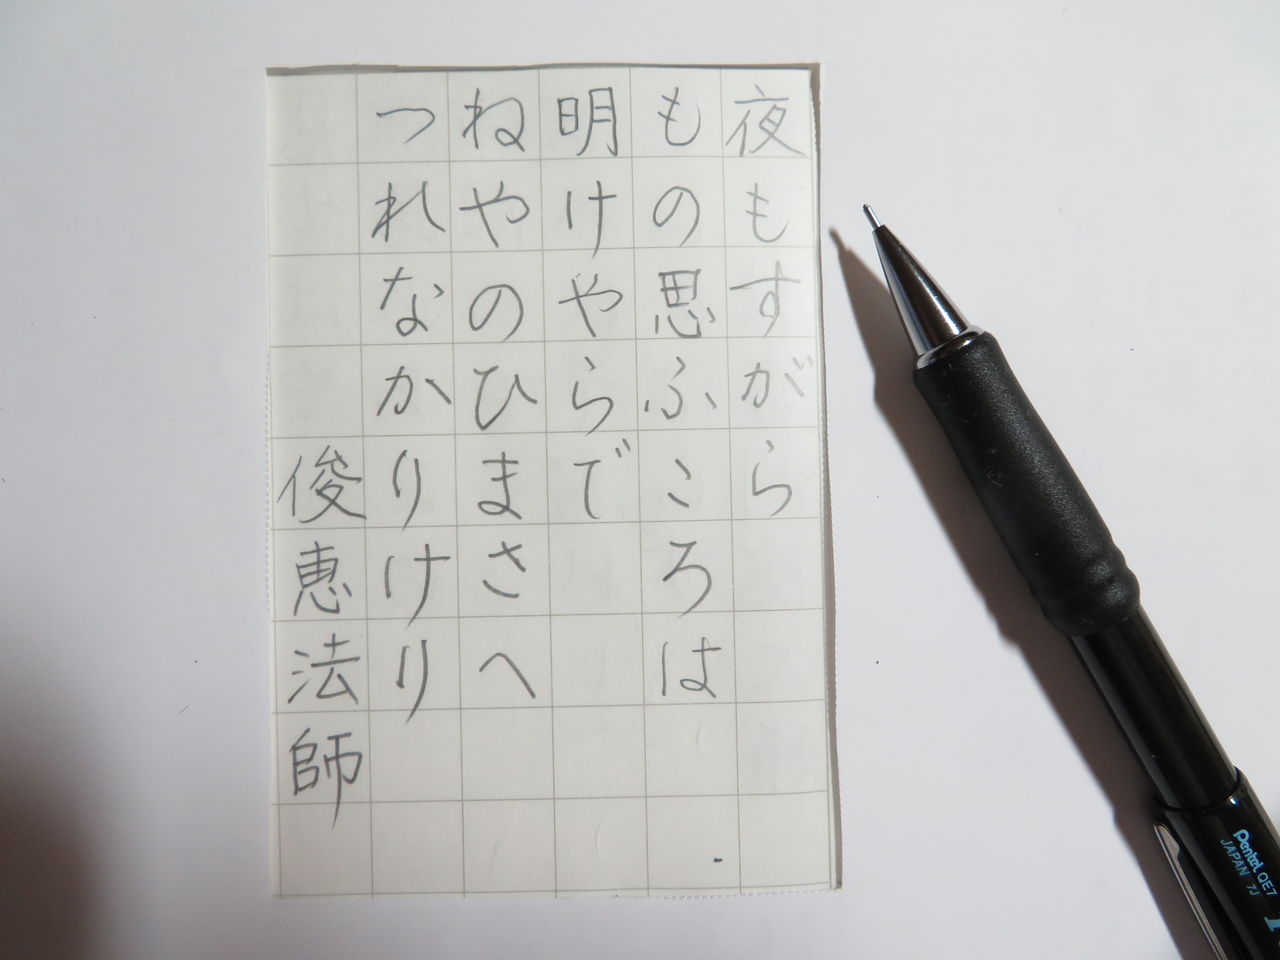 夜もすがら
もの思ふころは
明けやらで
ねやのひまさへ
つれなかりけり
俊恵法師
Pentel QE7
JAPAN 7J